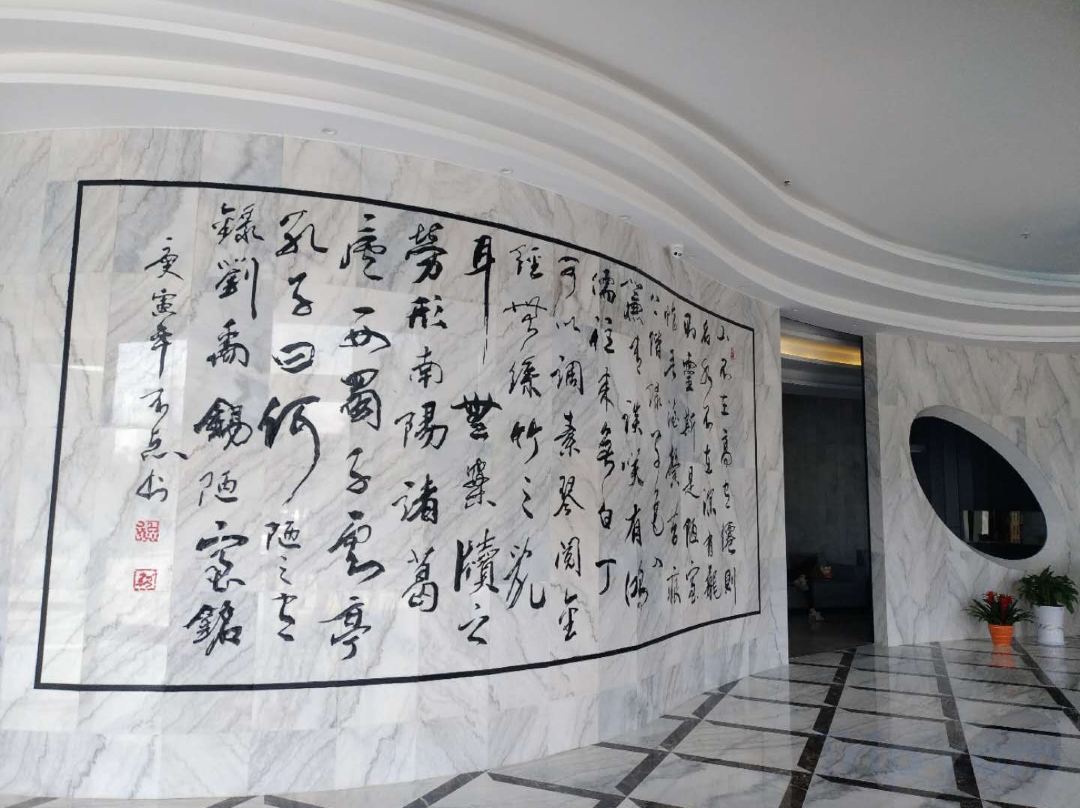 山不在高有僊則
名水不在深有龍
則靈斯是陋室
惟吾德馨苔痕
上階緑草色入
簾青談笑有鴻
儒往来無白丁
可以調素琴閲金
經無絲竹之亂
耳無案牘之
勞形南陽諸葛
廬西蜀子雲亭
孔子曰何陋之有
録劉禹錫陋室銘
庚寅年